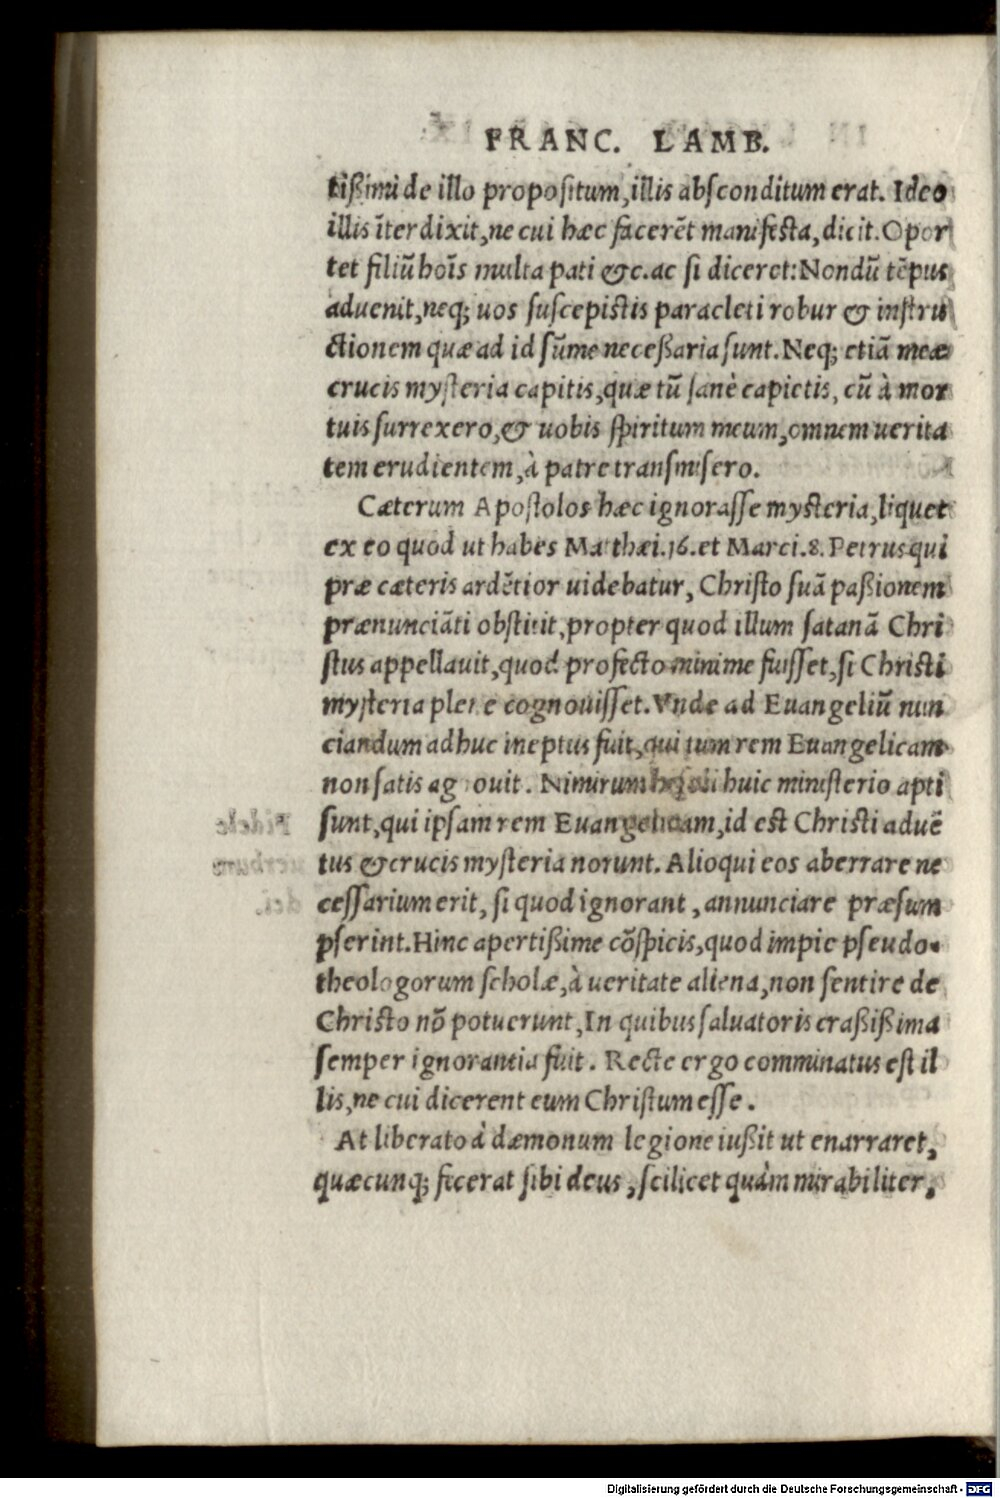 FRANC. LAMB.
tißimi de illo propositum, illis absconditum erat. Ideo
illis īterdixit, ne cui hæc facerēt manifesta, dicit. Opor
tet filiū hoīs multa pati &c. ac si diceret: Nondū tēpus
aduenit, neq; uos suscepistis paracleti robur & instru
ctionem quæ ad id sūme neceßaria sunt. Neq; etiā meæ
crucis mysteria capitis, quæ tū sanè capietis, cū à mor
tuis surrexero, & uobis spiritum meum, omnem uerita
tem erudientem, à patre transmisero.
Cæterum Apostolos hæc ignorasse mysteria, liquet
ex eo quod ut habes Matthæi.16. et Marci.8. Petrus qui
præ cæteris ardētior uidebatur, Christo suā paßionem
prænunciāti obstitit, propter quod illum satanā Chri
stus appellauit, quod profecto minime fuisset, si Christi
mysteria plene cognouisset. Vnde ad Euangeliū nun
ciandum adhuc ineptus fuit, qui tum rem Euangelicam
non satis agnouit. Nimirum hi soli huic ministerio apti
sunt, qui ipsam rem Euangelicam, id est Christi aduē
tus & crucis mysteria norunt. Alioqui eos aberrare ne
cessarium erit, si quod ignorant, annunciare præsum
pserint. Hinc apertißime cōspicis, quod impie pseudo-
theologorum scholæ, à ueritate aliena, non sentire de
Christo nō potuerunt, In quibus saluatoris craßißima
semper ignorantia fuit. Recte ergo comminatus est il
lis, ne cui dicerent eum Christum esse.
At liberato à dæmonum legione iußit ut enarraret,
quæcunq; fecerat sibi deus, scilicet quàm mirabiliter,
Digitalisierung gefördert durch die Deutsche Forschungsgemeinschaft - DFG